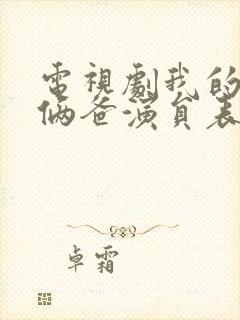 電視劇我的
倆爸演員表
卓霜